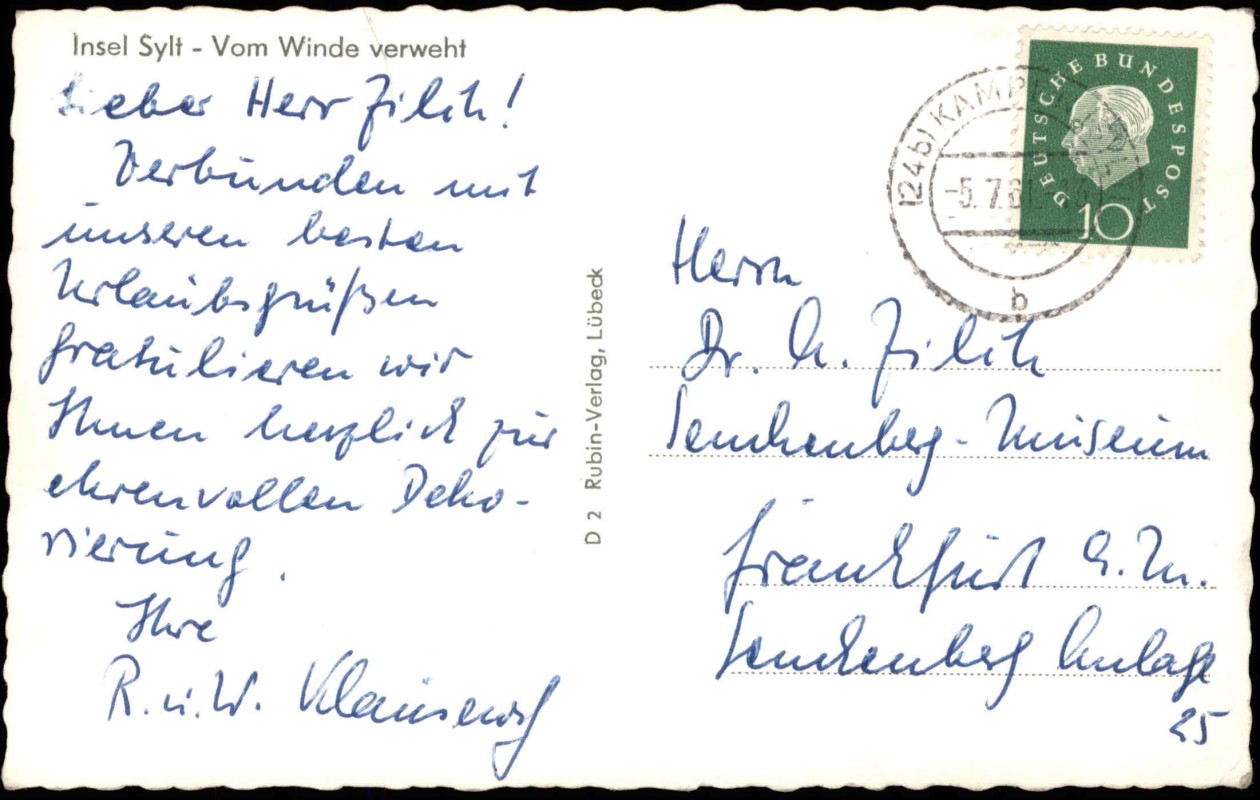 Insel Sylt - Vom Winde verweht
Lieber Herr Zilch!
Verbunden mit
unseren besten
Urlaubsgrüßen
gratulieren wir
Ihnen herzlich zur
ehrenvollen Deko-
rierung.
Ihre
R. u. W. Klausewitz
D 2 Rubin-Verlag, Lübeck
DEUTSCHE BUNDESPOST
10
(24b) KAMP
-5.7.61.
b
Herrn
Dr. A. Zilch
Senckenberg-Museum
Frankfurt a.M.
Senckenberg Anlage
25